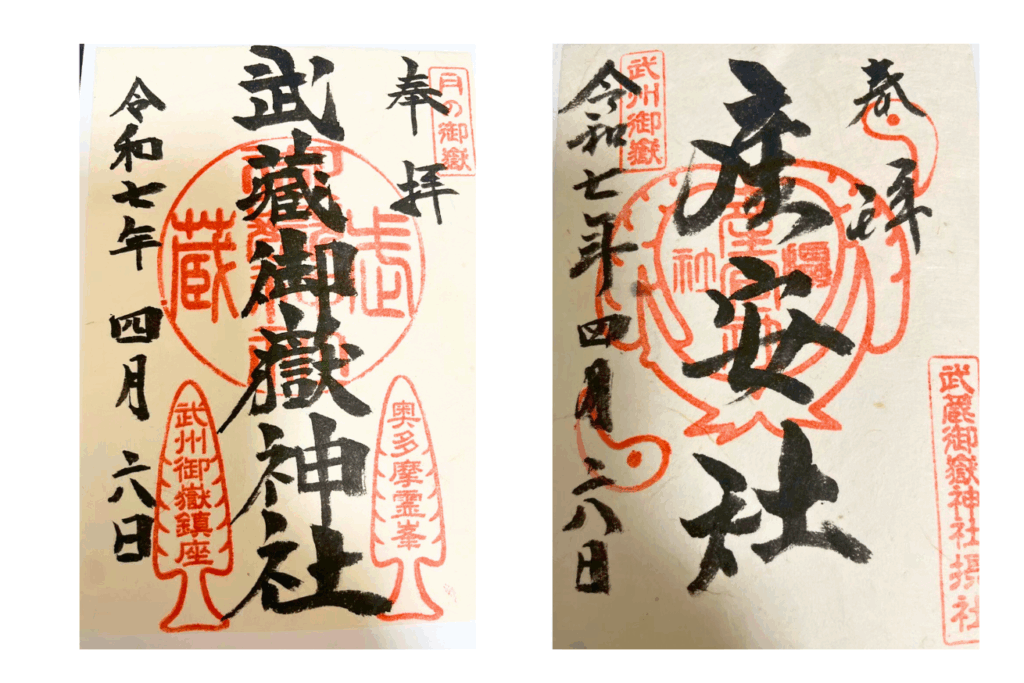 奉拝
月の御嶽
武蔵御嶽神社
武
蔵
奥多摩霊峯
武州御嶽鎮座
令和七年 四月 二八日
奉拝
武蔵御嶽神社摂社
産安社
武州御嶽
令和七年 四月 二八日